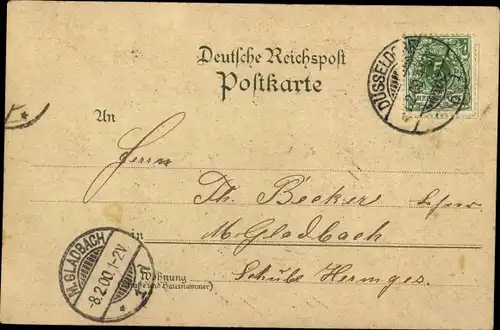 Deutsche Reichspost
Postkarte
DÜSSELDORF
An
Herrn
Th. Becker
in M. Gladbach
M. GLADBACH
8.2.00.1-2V
Wohnung
(Straße und Hausnummer)
Schule Hermges.